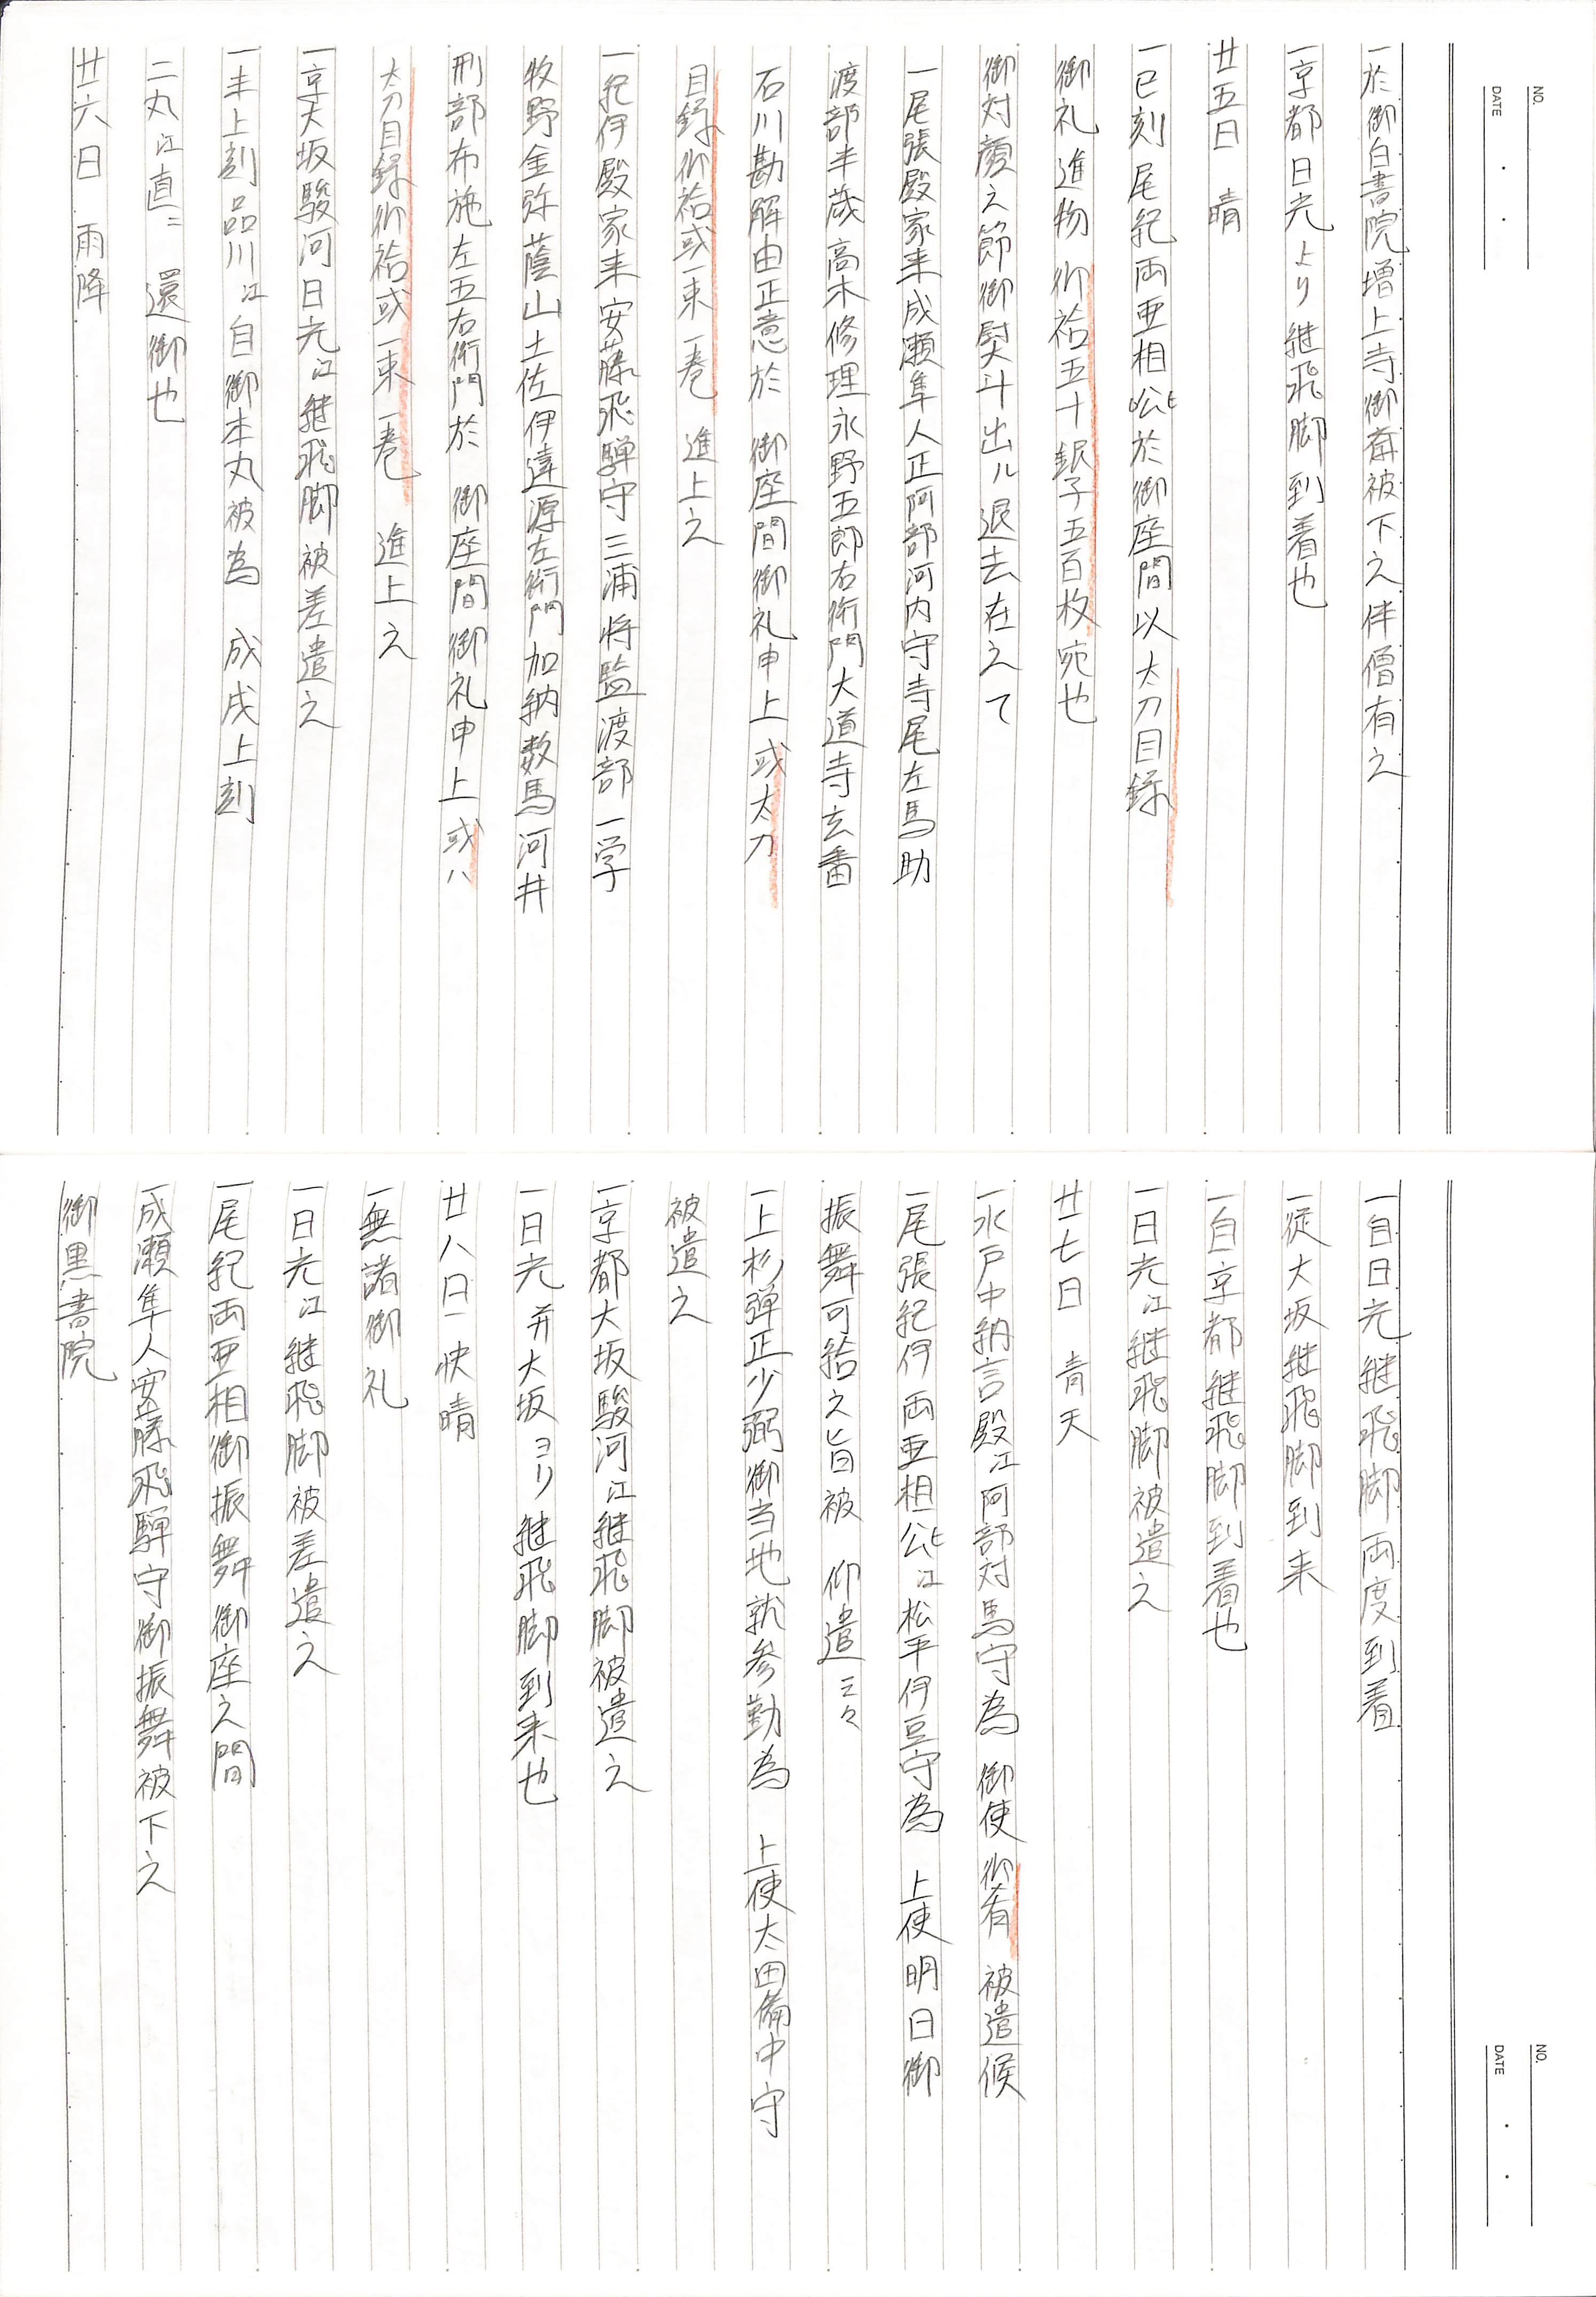 NO.
DATE
一於御白書院増上寺御斎被下之伴僧有之
一京都日光より継飛脚到着也
廿五日 晴
一巳刻尾紀両亜相公於御座間以太刀目録
御礼進物御袷五十銀子五百枚宛也
御対顔之節御熨斗出ル退去在之て
一尾張殿家来成瀬隼人正阿部河内守寺尾左馬助
渡部半蔵高木修理永野五郎右衛門大道寺玄蕃
石川勘解由正意於 御座間御礼申上或太刀
目録御袷或一束一巻 進上之
一紀伊殿家来安藤飛騨守三浦将監渡部一学
牧野金弥蔭山土佐伊達源左衛門加納数馬河井
刑部布施左五右衛門於 御座間御礼申上或ハ
太刀目録御袷或一束一巻 進上之
一京大坂駿河日光江継飛脚被差遣之
一未上刻品川江自御本丸被為 成戌上刻
二丸江直ニ 還御也
廿六日 雨降
NO.
DATE
一自日光継飛脚両度到着
一従大坂継飛脚到来
一自京都継飛脚到着也
一日光江継飛脚被遣之
廿七日 青天
一水戸中納言殿江阿部対馬守為 御使御肴 被遣候
一尾張紀伊両亜相公江松平伊豆守為 上使明日御
振舞可給之旨被 仰遣云々
一上杉弾正少弼御当地就参勤為 上使太田備中守
被遣之
一京都大坂駿河江継飛脚被遣之
一日光并大坂ヨリ継飛脚到来也
廿八日 快晴
一無諸御礼
一日光江継飛脚被差遣之
一尾紀両亜相御振舞御座之間
一成瀬隼人安藤飛騨守御振舞被下之
御黒書院